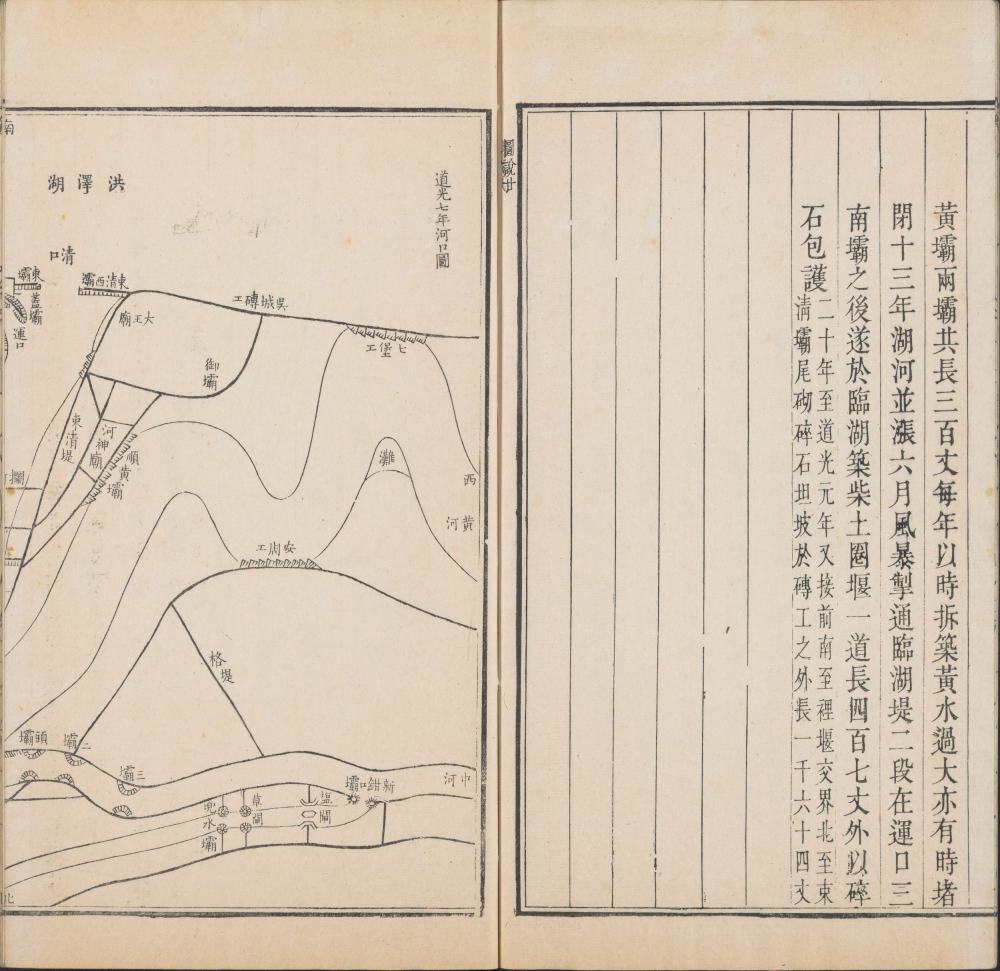 黃壩兩壩共長三百丈每年以時拆築黃水過大亦有時堵
閉十三年湖河並漲六月風暴掣通臨湖堤二段在運口三
南壩之後遂於臨湖築柴土圈堰一道長四百七丈外以碎
石包護
二十年至道光元年又接前南至裡堰交界北至東
清壩尾砌碎石坦坡於磚工之外長一千六十四丈
圖說廿
道光七年河口圖
南
洪澤湖
清口
東清西壩
東壩
蓋壩
運口
大王廟
吳城磚工
七堡工
御壩
東清堤
河神廟
順黃壩
灘
西
黃河
安瀾工
格堤
頭壩
二壩
三壩
中河
新鉗口壩
鹽閘
草閘
兜水壩
北